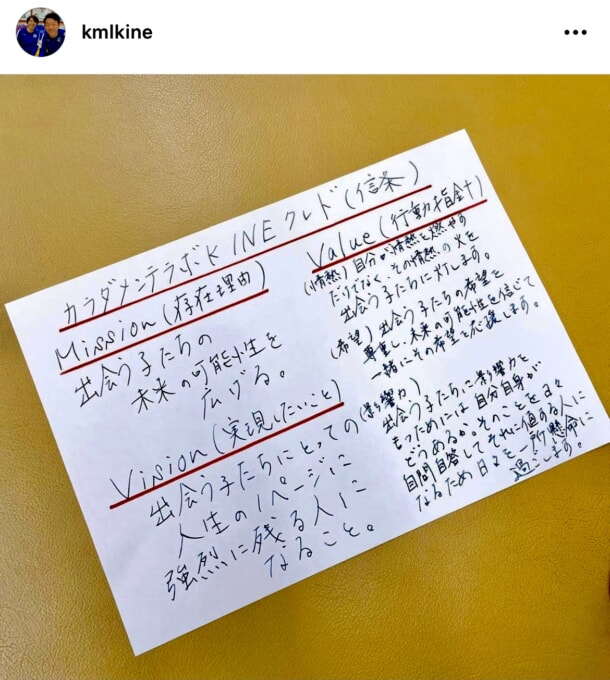 kmlkine
カラダメンテラボKINEクレド(信条)
Mission(存在理由)
出会う子たちの
未来の可能性を
広げる。
Vision(実現したいこと)
出会う子たちにとっての
人生の1ページに
強烈に残る人に
なること。
Value(行動指金十)
(情熱)自分が情熱を燃やす
だけでなく、その情熱の火を
出会う子たちに灯します。
(希望)出会う子たちの希望を
尊重し、未来の可能性を信じて
一緒にその希望を応援します。
(影響力)
出会う子たちに影響力を
もつためには自分自身が
どうあるか。そのことを日々
自問自答してそれに値する人に
なるため日々を一所懸命に
過ごします!